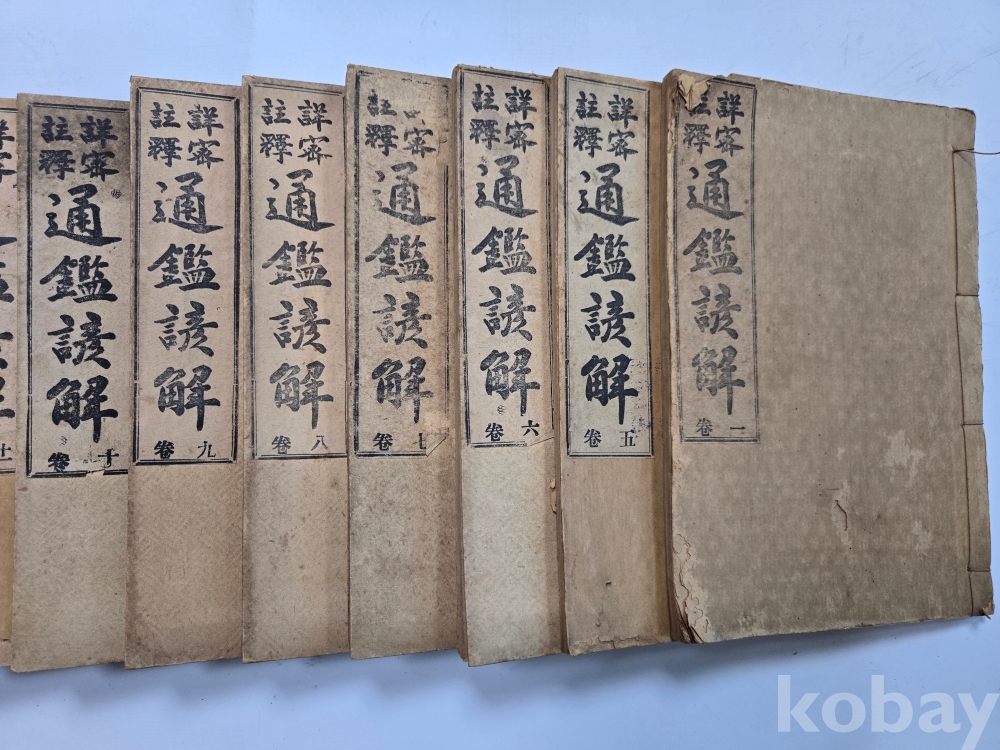 詳密
註釋
通鑑諺解
卷一
詳密
註釋
通鑑諺解
卷五
詳密
註釋
通鑑諺解
卷六
密
註釋
通鑑諺解
卷七
詳密
註釋
通鑑諺解
卷八
詳密
註釋
通鑑諺解
卷九
詳密
註釋
通鑑諺解
卷十
kobay